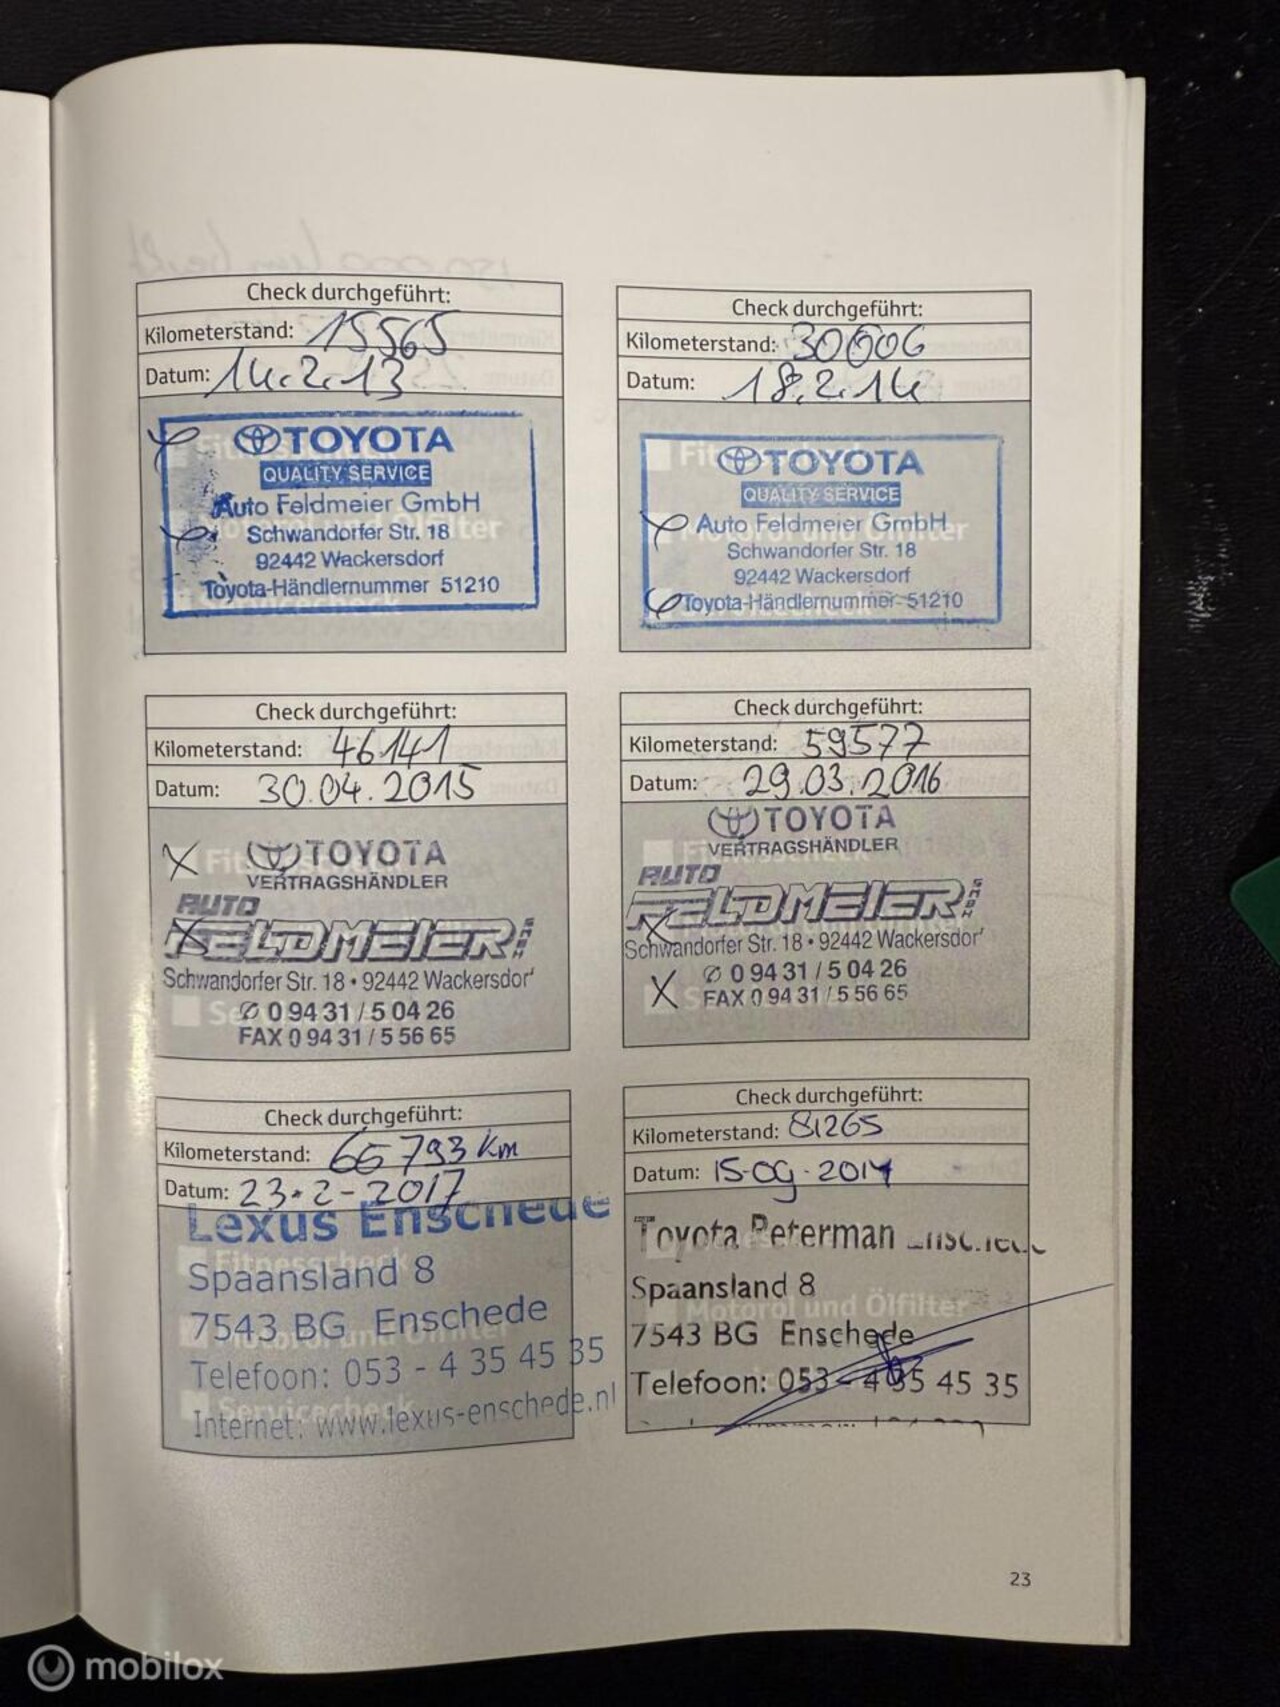 Check durchgeführt:
Kilometerstand: 15565
Datum: 14.2.13
TOYOTA
QUALITY SERVICE
Auto Feldmeier GmbH
Schwandorfer Str. 18
92442 Wackersdorf
Toyota-Händlernummer 51210
Check durchgeführt:
Kilometerstand: 30006
Datum: 18.2.14
Fitnesscheck
TOYOTA
QUALITY SERVICE
Auto Feldmeier GmbH
Motoröl und Ölfilter
Schwandorfer Str. 18
92442 Wackersdorf
Toyota-Händlernummer 51210
Servicecheck
Check durchgeführt:
Kilometerstand: 46141
Datum: 30.04.2015
TOYOTA
VERTRAGSHÄNDLER
AUTO
FELDMEIER GMBH
Schwandorfer Str. 18 • 92442 Wackersdorf
✆ 0 94 31 / 5 04 26
FAX 0 94 31 / 5 56 65
Check durchgeführt:
Kilometerstand: 59577
Datum: 29.03.2016
TOYOTA
Fitnesscheck
VERTRAGSHÄNDLER
AUTO
FELDMEIER GMBH
Schwandorfer Str. 18 • 92442 Wackersdorf
✆ 0 94 31 / 5 04 26
FAX 0 94 31 / 5 56 65
Check durchgeführt:
Kilometerstand: 66793 km
Datum: 23-2-2017
Lexus Enschede
Fitnesscheck
Spaansland 8
7543 BG Enschede
Motoröl und Ölfilter
Telefoon: 053 - 4 35 45 35
Servicecheck
Internet: www.lexus-enschede.nl
Check durchgeführt:
Kilometerstand: 81265
Datum: 15-09-2017
Toyota Peterman Enschede
Spaansland 8
Motoröl und Ölfilter
7543 BG Enschede
Telefoon: 053 - 4 35 45 35
23
mobilox